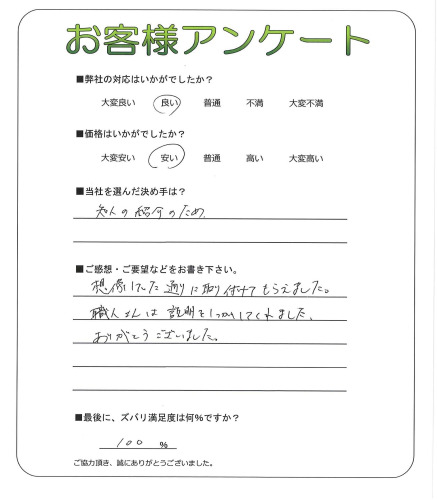 お客様アンケート
■弊社の対応はいかがでしたか？
大変良い 良い 普通 不満 大変不満
■価格はいかがでしたか？
大変安い 安い 普通 高い 大変高い
■当社を選んだ決め手は？
知人の紹介のため
■ご感想・ご要望などをお書き下さい。
想像していた通りに取り付けてもらえました。
職人さんは説明をしっかりしてくれました、
ありがとうございました。
■最後に、ズバリ満足度は何％ですか？
100 %
ご協力頂き、誠にありがとうございました。